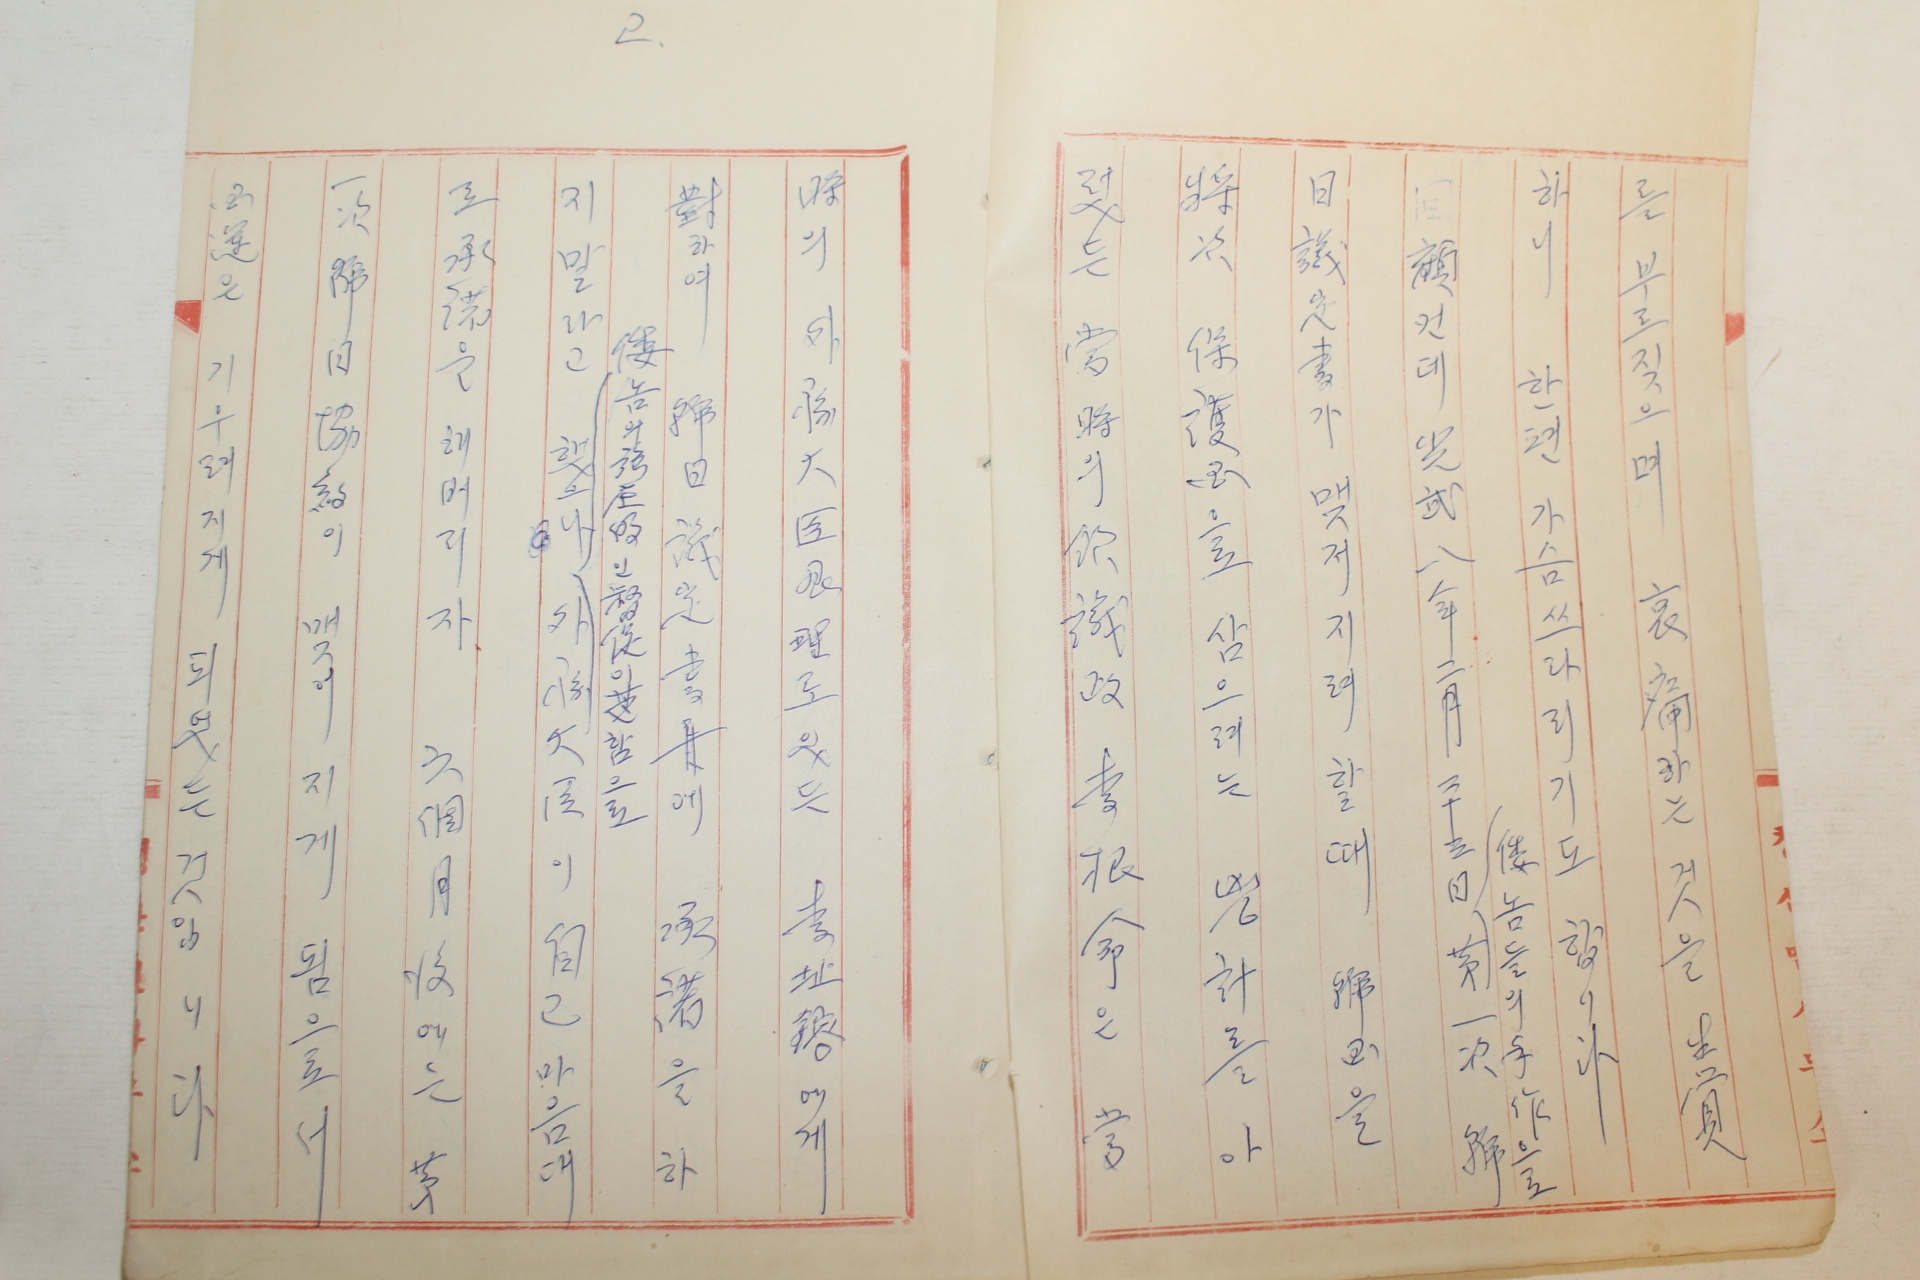 2.
를 부르짖으며 哀痛하는 것을 生覚
하니 한편 가슴쓰라리기도 합니다
倭놈들의 手作으로
回顧컨데 光武八年二月二十三日 第一次 韓
日議定書가 맺저지려 할때 韓国을
將次 保護国으로 삼으려는 凶計를 아
렀는 當時의 議政 李根命은 當
時의 外務大臣 理로 있는 李址鎔에게
對하여 韓日 議定書에 承諾을 하
倭놈의
지말라고 했으나 外務大臣이 自己 마음대
로 承諾을 해버리자 六個月 後에는 第
一次 韓日協約이 맺이지게 됨으로서
国運은 기우러지게 되였는 것임니다